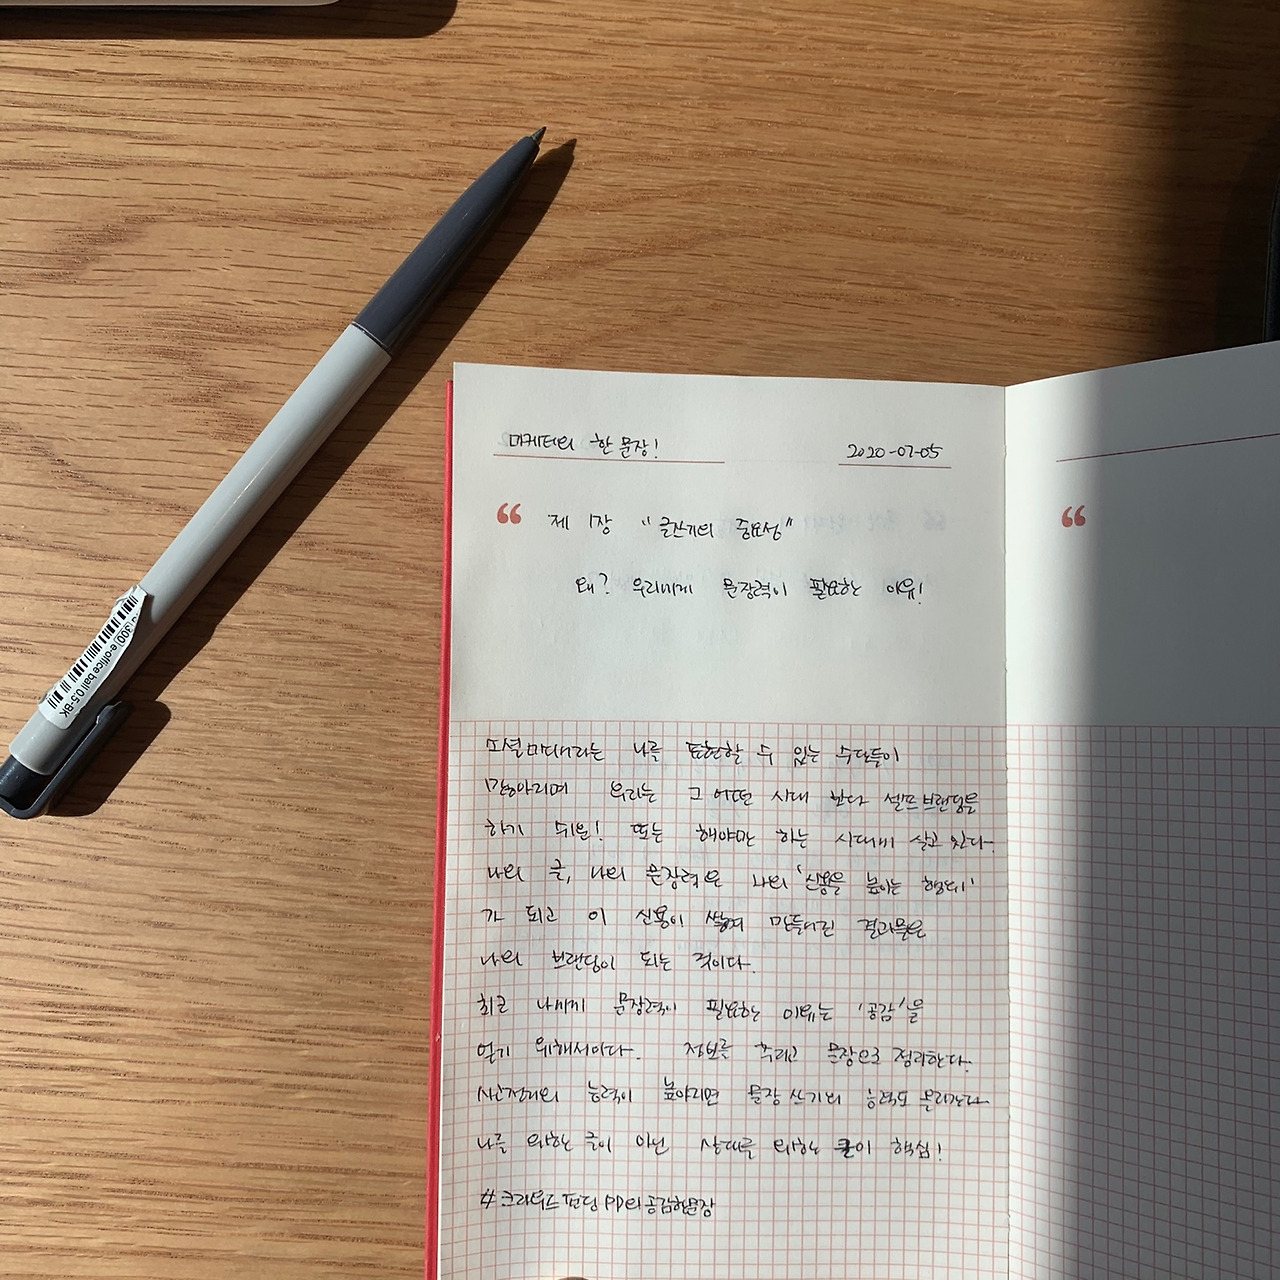 마케터의 한 문장!
2020-07-05
“ 제 1장 "글쓰기의 중요성"
“
왜? 우리에게 문장력이 필요한 이유!
소셜미디어라는 나를 표현할 수 있는 수단들이
많아지며 우리는 그 어떤 시대 보다 셀프브랜딩을
하기 쉬운! 또는 해야만 하는 시대에 살고 있다.
나의 글, 나의 문장력은 나의 '신용을 높이는 형태'
가 되고 이 신용이 쌓여 만들어진 결과물은
나의 브랜딩이 되는 것이다.
최근 나에게 문장력이 필요한 이유는 '공감'을
얻기 위해서이다. 정보를 추리고 문장으로 정리한다.
능력이 높아지면 문장 쓰기의 능력도 올라간다
나를 위한 글이 아닌 상대를 위한 글이 핵심!
#크라우드펀딩PD의공감한문장
300 e-office ball 0.5-BK